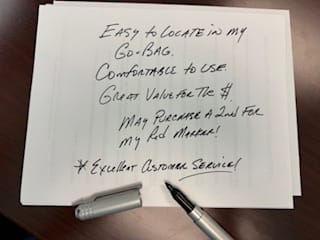 EASY TO LOCATE IN MY
GO-BAG.
COMFORTABLE TO USE
GREAT VALUE FOR THE $.
MAY PURCHASE A 2nd FOR
MY Red MARKER!
* EXCELLENT CUSTOMER SERVICE!